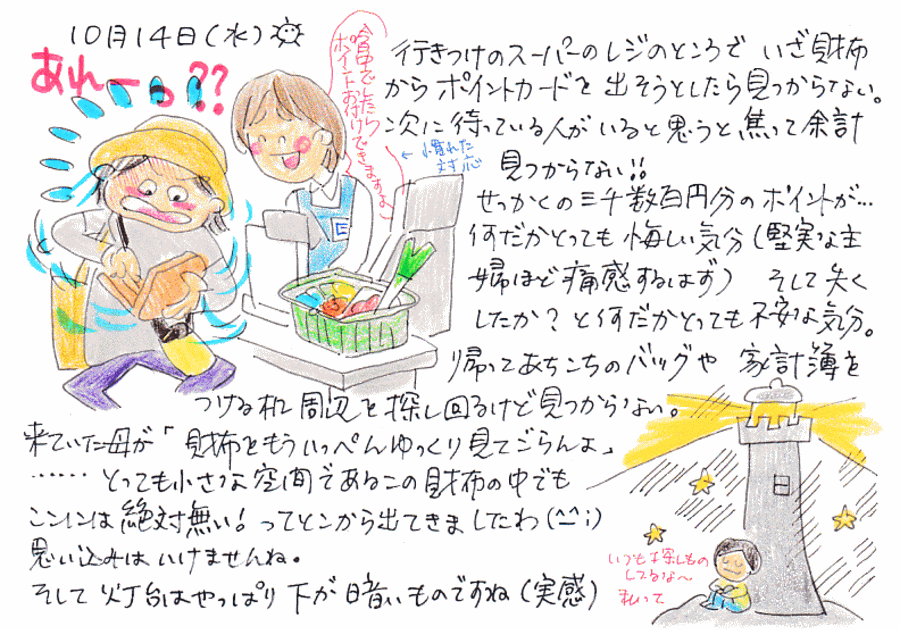 10月14日(水)
あれーっ??
今月中でしたら
ポイントお付けできますぉぉ
←慣れた
対応
行きつけのスーパーのレジのところで いざ財布
からポイントカードを出そうとしたら見つからない。
次に待っている人がいると思うと焦って余計
見つからない!!
せっかくの三千数百円分のポイントが…
何だかとっても悔しい気分(堅実な主
婦ほど痛感するはず) そして失く
したか?と何だかとっても不安な気分。
帰ってあちこちのバッグや 家計簿を
つける机周辺を探し回るけど見つからない。
来ていた母が「財布をもういっぺんゆっくり見てごらんよ」
…… とっても小さな空間であるこの財布の中でも
ここには絶対無い!ってとこから出てきましたわ(^^;)
思い込みはいけませんね。
そして灯台はやっぱり下が暗いものですね(実感)
いつも探しもの
してるな〜
私って